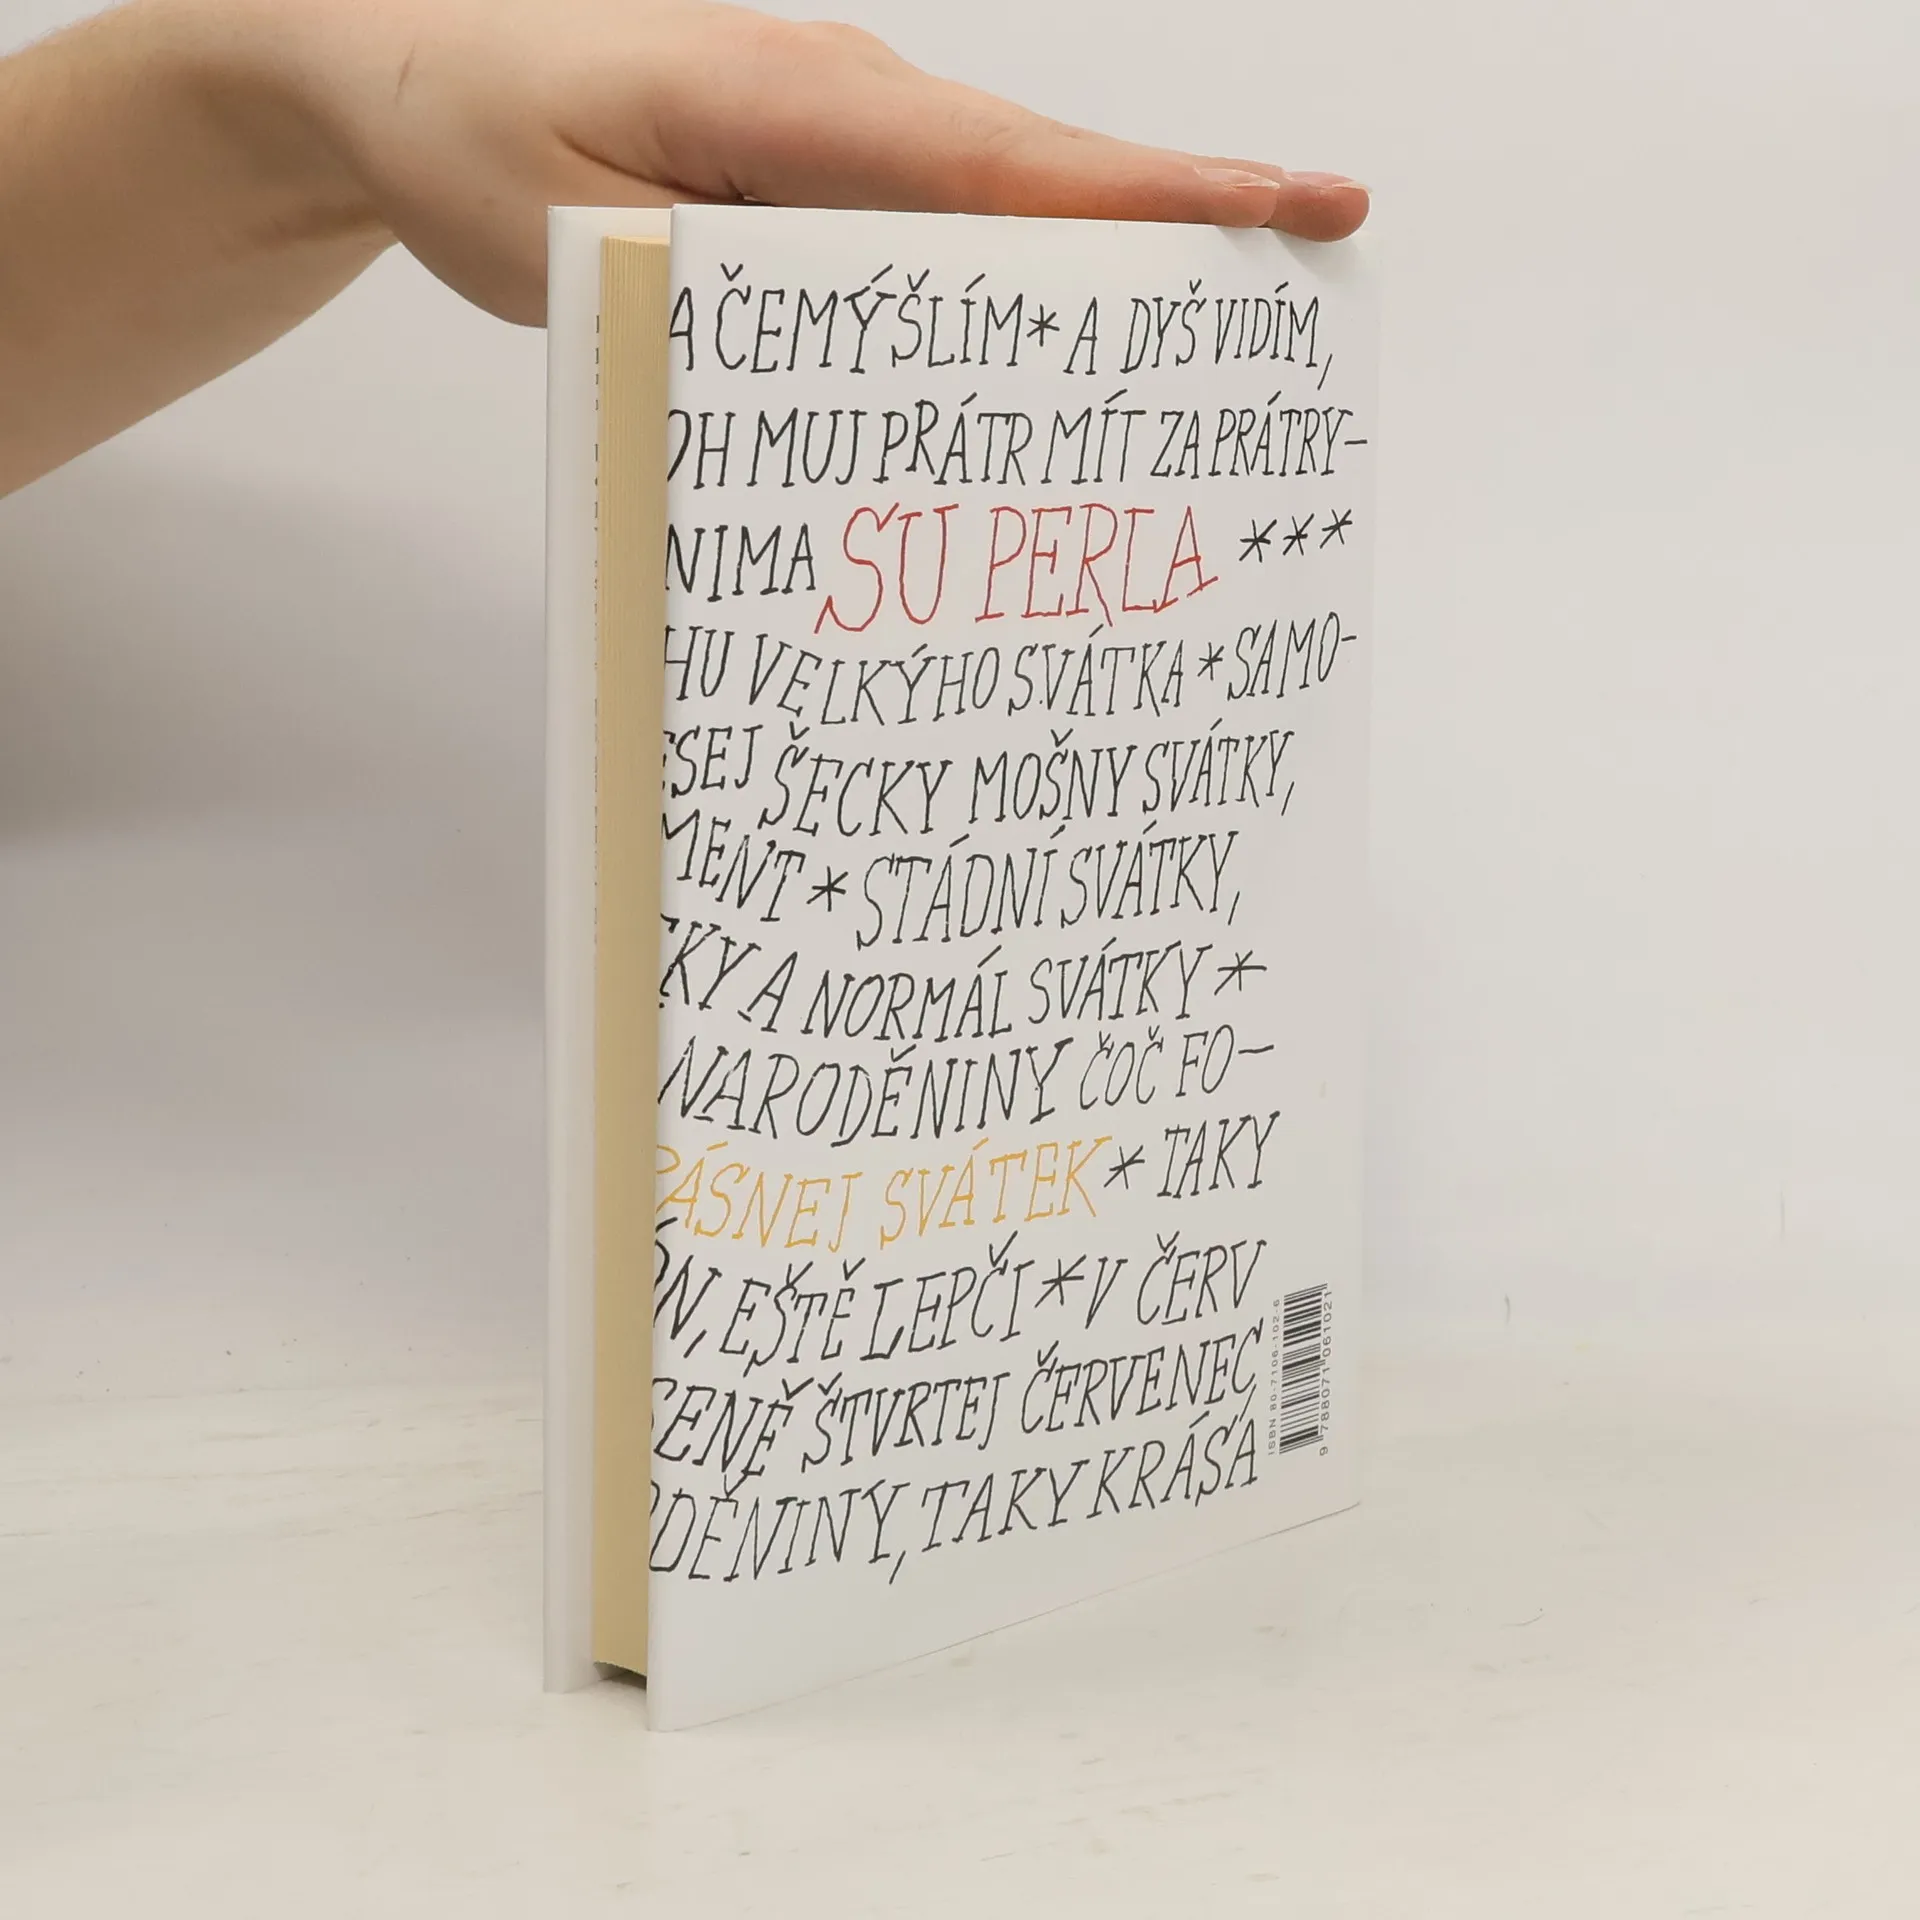 A ČEMÝŠLÍM * A DYŠ VIDÍM,
OH MUJ PRÁTR MÍT ZA PRÁTRY-
NIMA SU PERLA ***
HU VELKÝHO SVÁTKA * SAMO-
ESEJ ŠECKY MOŠNY SVÁTKY,
MENT * STÁDNÍ SVÁTKY,
KY A NORMÁL SVÁTKY *
NARODĚNINY ČOČ FO-
RÁSNEJ SVÁTEK * TAKY
ÓN, EŠTĚ LEPČI * V ČERV
SENĚ ŠTVRTEJ ČERVENEC
ODĚNINY, TAKY KRÁSÁ
ISBN 80-7106-102-6
9 788071 061021